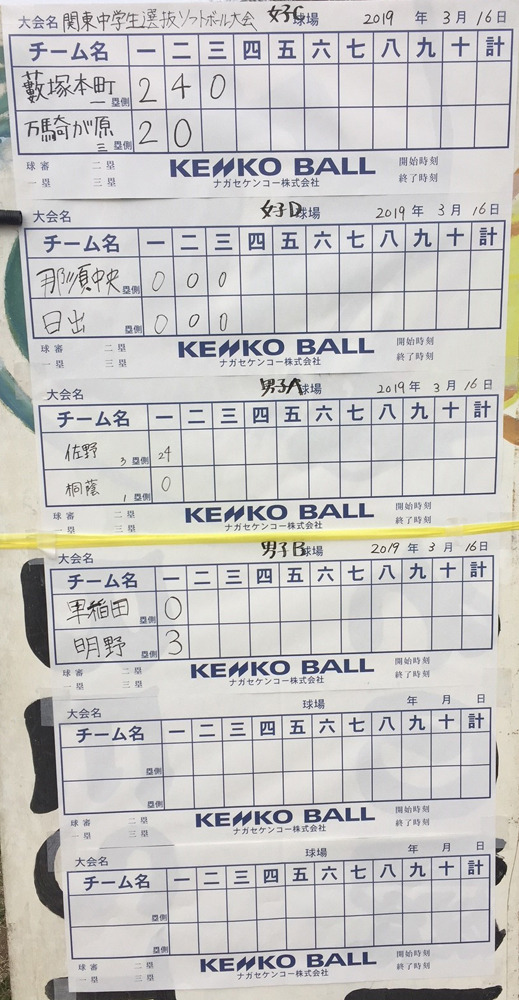 大会名 関東中学生選抜ソフトボール大会 女子C 球場 2019 年 3 月 16 日
チーム名 一 二 三 四 五 六 七 八 九 十 計
藪塚本町 一 塁側 2 4 0
万騎が原 三 塁側 2 0
球審 二塁 KENKO BALL 開始時刻
一塁 三塁 ナガセケンコー株式会社 終了時刻
大会名 女子D 球場 2019 年 3 月 16 日
チーム名 一 二 三 四 五 六 七 八 九 十 計
那須中央 塁側 0 0 0
日出 塁側 0 0 0
球審 二塁 KENKO BALL 開始時刻
一塁 三塁 ナガセケンコー株式会社 終了時刻
大会名 男子A 球場 2019 年 3 月 16 日
チーム名 一 二 三 四 五 六 七 八 九 十 計
佐野 3 塁側 24
桐蔭 1 塁側 0
球審 二塁 KENKO BALL 開始時刻
一塁 三塁 ナガセケンコー株式会社 終了時刻
大会名 男子B 球場 2019 年 3 月 16 日
チーム名 一 二 三 四 五 六 七 八 九 十 計
早稲田 塁側 0
明野 塁側 3
球審 二塁 KENKO BALL 開始時刻
一塁 三塁 ナガセケンコー株式会社 終了時刻
大会名 球場 年 月 日
チーム名 一 二 三 四 五 六 七 八 九 十 計
塁側
塁側
球審 二塁 KENKO BALL 開始時刻
一塁 三塁 ナガセケンコー株式会社 終了時刻
大会名 球場 年 月 日
チーム名 一 二 三 四 五 六 七 八 九 十 計
塁側
塁側
球審 二塁 KENKO BALL 開始時刻
一塁 三塁 ナガセケンコー株式会社 終了時刻